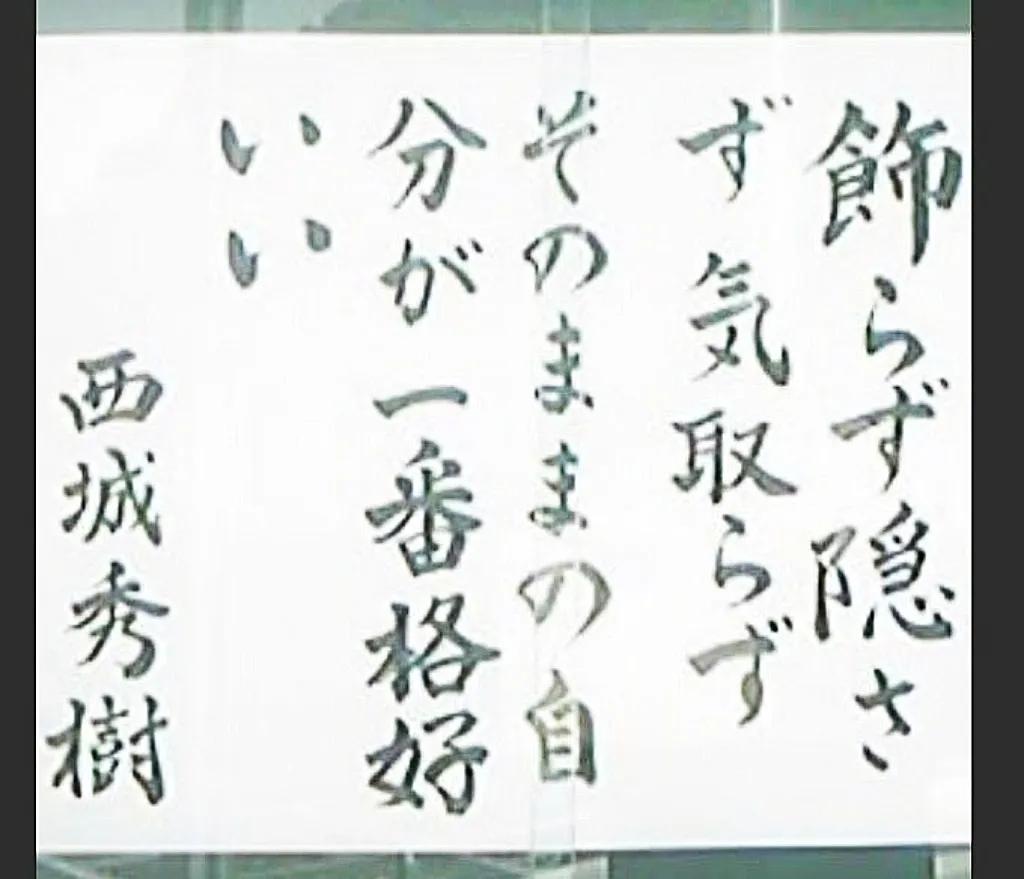 飾らず隠さ
ず気取らず
そのままの自
分が一番格好
いい
西城秀樹